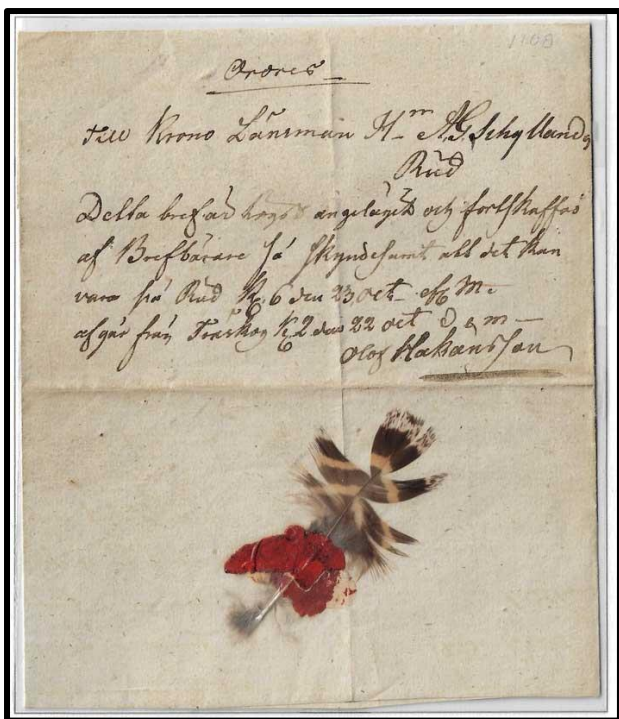 1768
Ordres
Till Krono Länsman H-m A.G. Schyllande
Rud
Detta bref är högst angeläget och fortskaffas
af Brefbärare så skyndesamt att det kan
vara på Rud K 6 den 23 oct eft M-
afgår från Fräskog K 2 den 22 oct e m-
Olof Håkansson